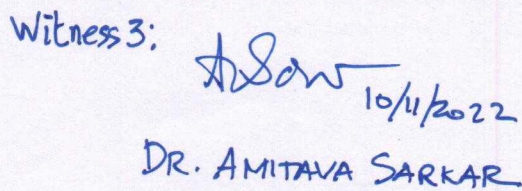 Witness 3:
10/11/2022
DR. AMITAVA SARKAR